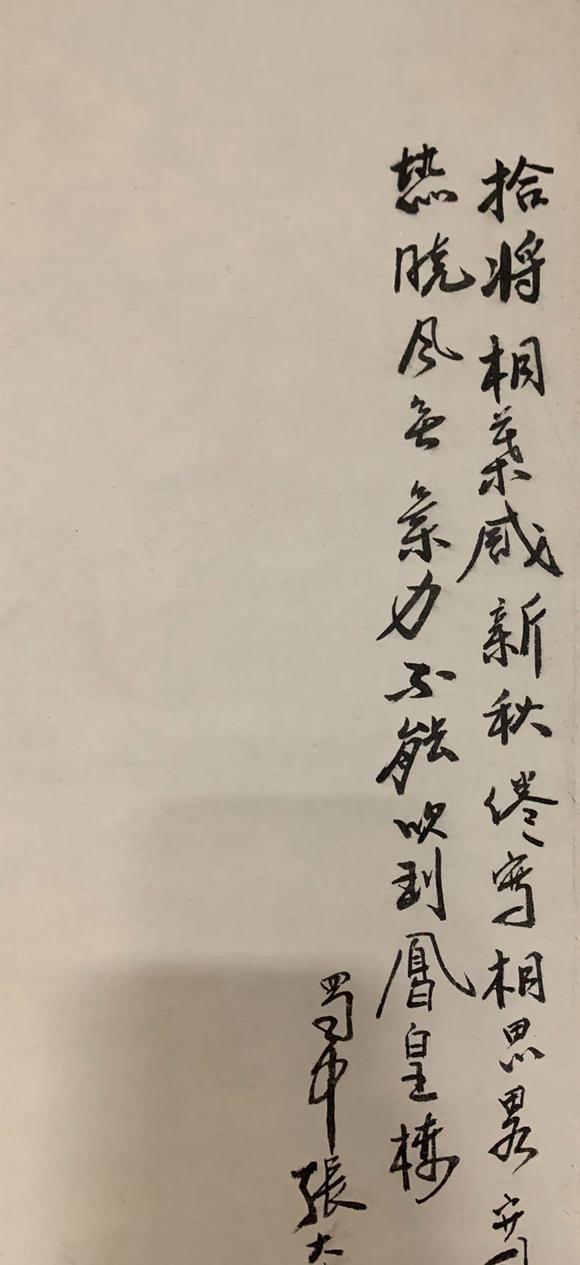 拾將桐葉感新秋倦寫相思畧寄
愁曉風無氣力不能吹到鳳皇樓
蜀中張大